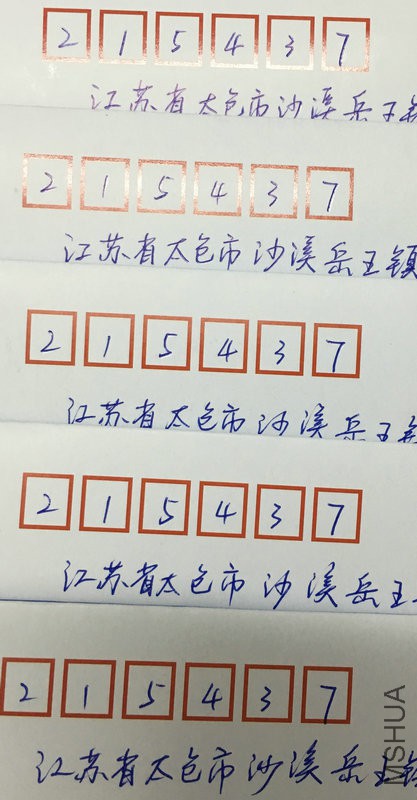 215437
江苏省太仓市沙溪岳王镇
215437
江苏省太仓市沙溪岳王镇
215437
江苏省太仓市沙溪岳王镇
215437
江苏省太仓市沙溪岳王
215437
江苏省太仓市沙溪岳王镇